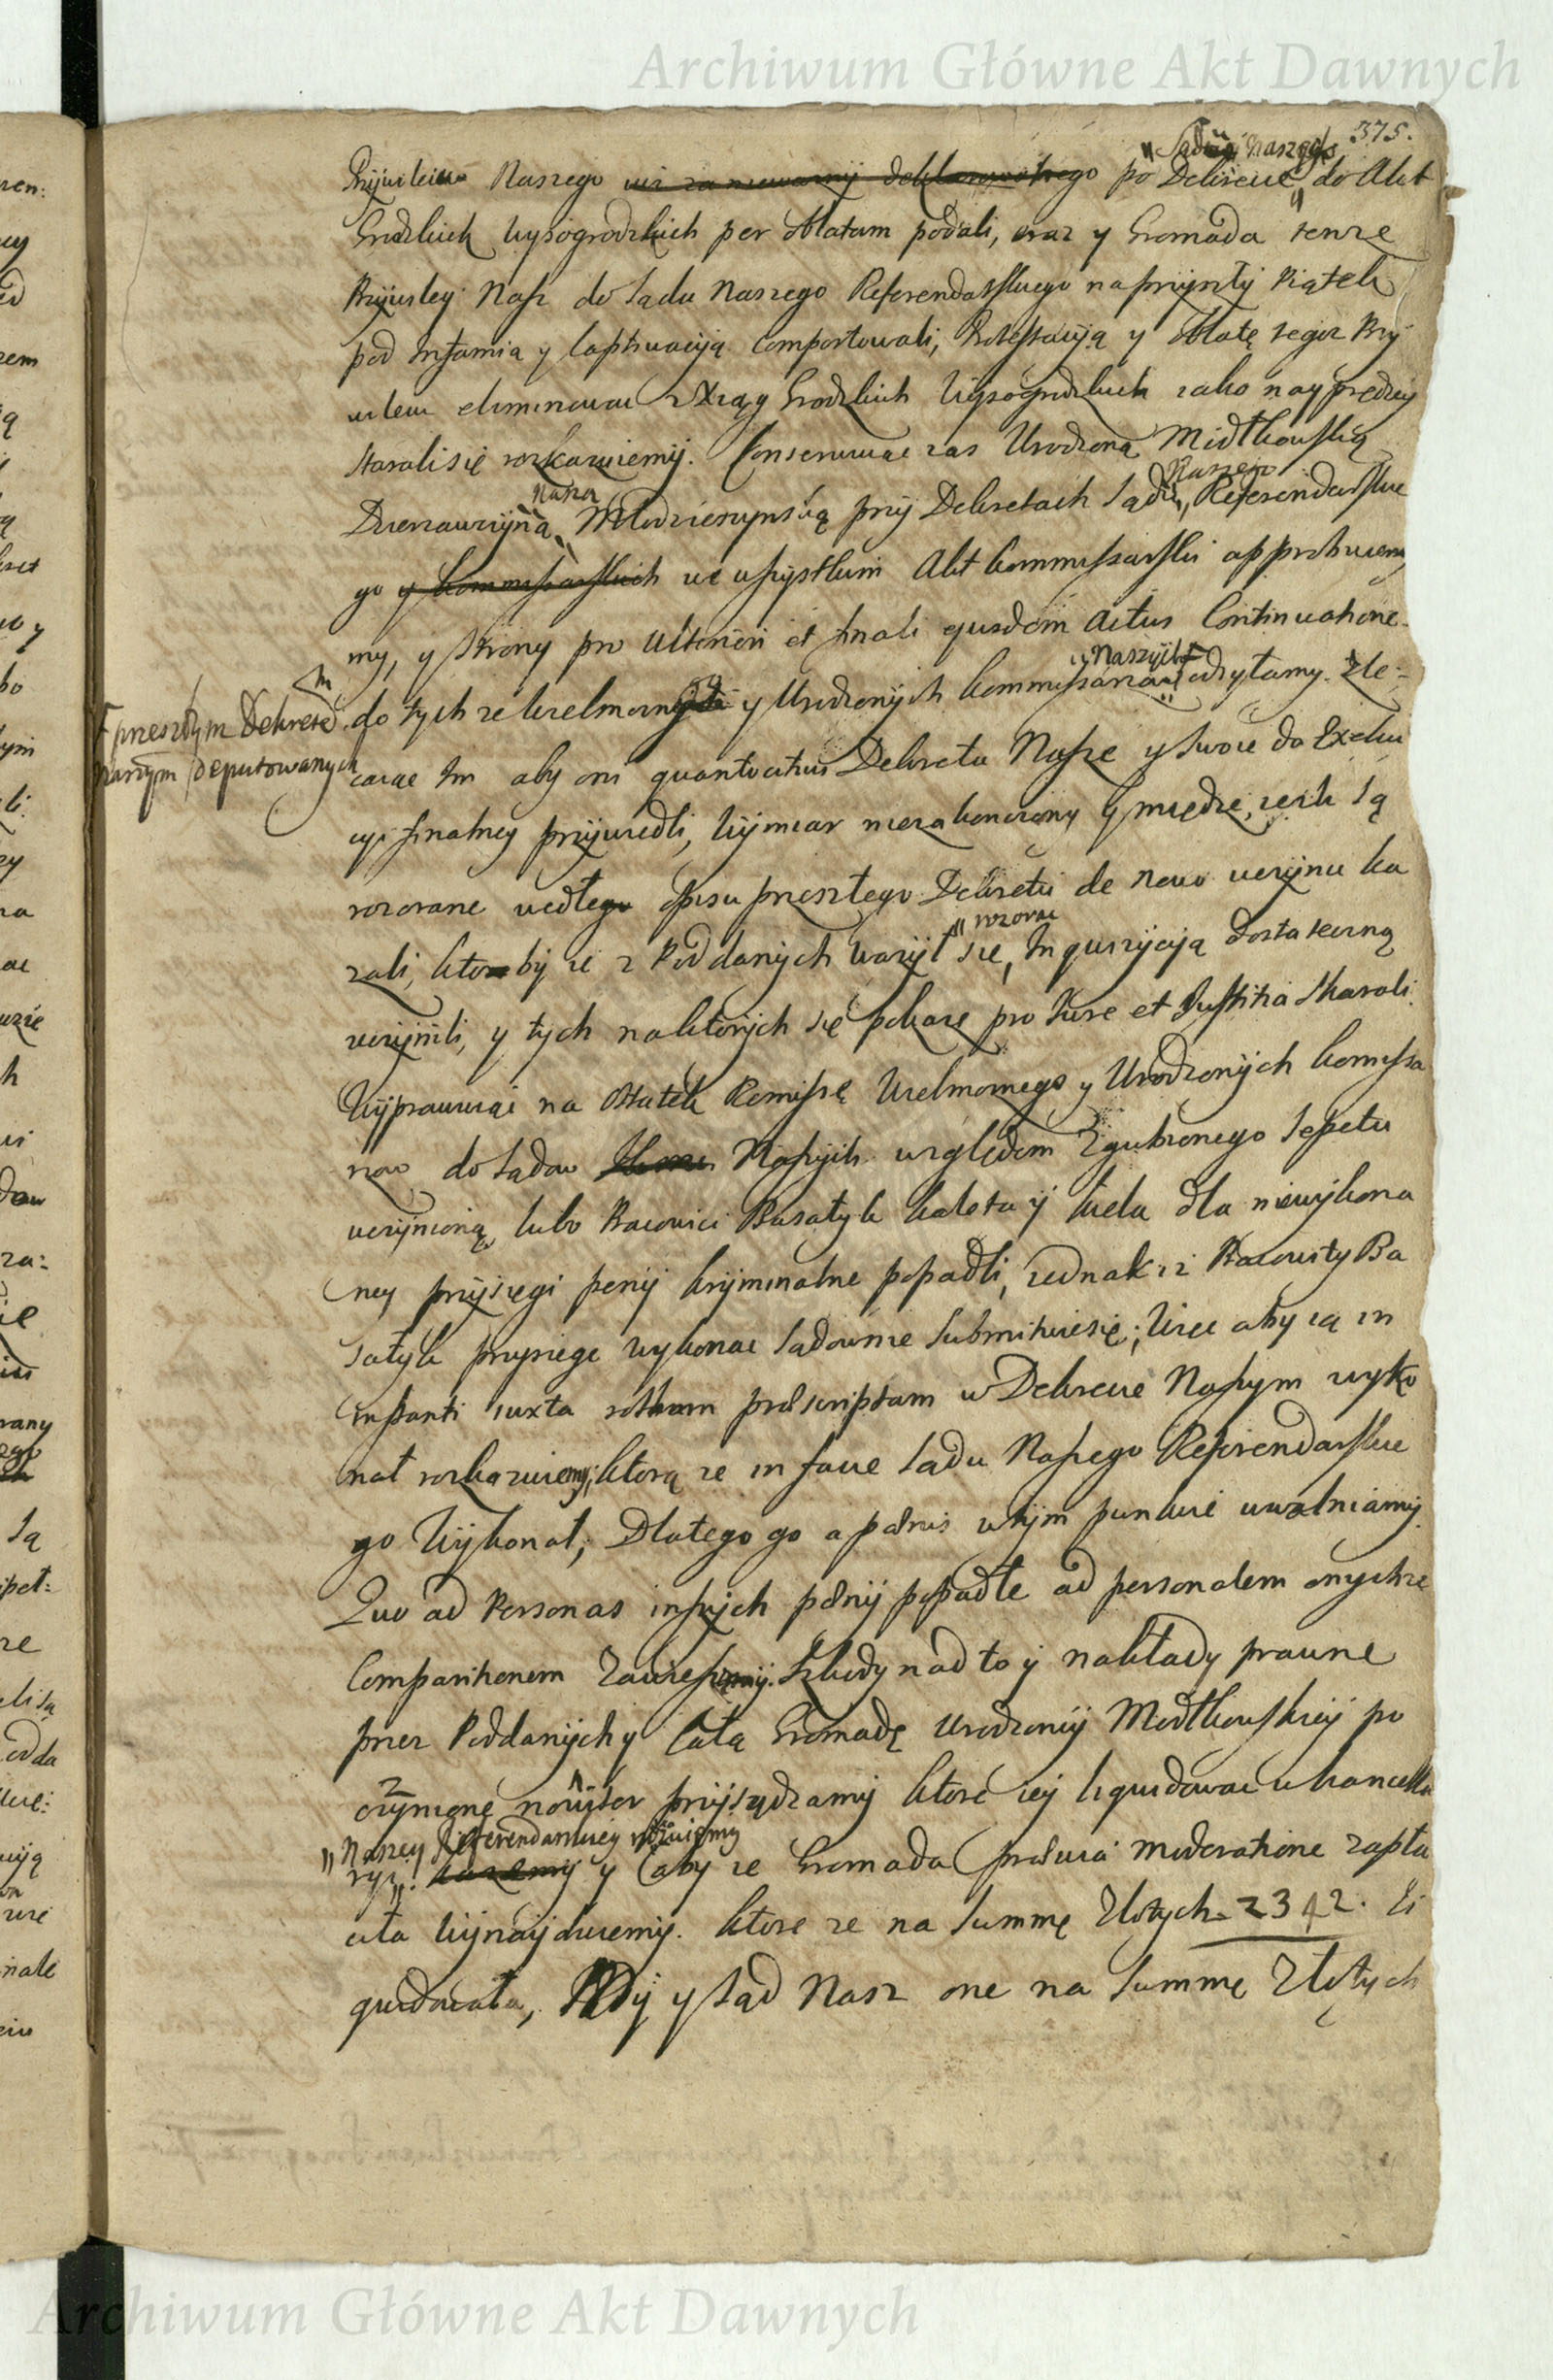 Archiwum Główne Akt Dawnych
375.
Sądu Naszego
Przywileiu Naszego po Dekrecie do Akt
Grodzkich Wyszogrodzkich per oblatam podali, oraz y Gromada tenze
Przywiley Nasz do Sądu Naszego Referendarskiego na przyszły Piątek
pod Infamią y Captivacyią comportowali, Protestacyią y oblatę tegoz Przy
wileiu eliminować z Xiąg Grodzkich Wyszogrodzkich iako nayprędzey
starali się rozkazuiemy. Conserwuiąc zas Urodzoną Modlkowską
Naszą Naszego
Dzierzawczynią Młodzieszynską przy Dekretach Sądu Referendarskie
go y Kommissarskich we wszystkim Akt Kommissarski approbuiem
my, y strony pro ulteriori et finali eiusdem Actus Continuatione
Naszych
F przeszłym Dekrete
do tych ze Wielmoznych y Urodzonych Kommissarzow odsyłamy. Zle-
naszym deputowanych
caiąc Im aby oni quantocius Dekreta Nasze y swoie do Exeku
cyi finalney przywiedli, Wymiar niezakonczony y miedze, iesli są
rozorane według opisu przeszłego Dekretu de novo uczynić ka
rozorać
zali, ktoby ie z Poddanych wazył się, Inquizycyią dostateczną
uczynili, y tych na ktorych się pokaze pro Iure et Justitia skarali.
Wyprawuiąc na ostatek Remissę Wielmoznego y Urodzonych Komissa
rzow do Sądow Naszych względem Zgubionego Sepetu
uczynioną, lubo Pracowici Basałyk Kaleta y Kiela dla niewykona
ney przysięgi peny kryminalne popadli, iednak iz Pracowity Ba
sałyk przysięgę wykonać Sądownie Submituie się; Więc aby ią in
instanti iuxta rotham praescriptam w Dekrecie Naszym wyko
nał rozkazuiemy; ktorą ze in facie Sądu Naszego Referendarskie
go Wykonał; Dlatego go a paenis w tym punkcie uwalniamy.
Quo ad Personas inszych paeny popadłe ad personalem onychze
Comparitionem Zawieszamy. Szkody nad to y nakłady prawne
przez Poddanych y Całą Gromadę Urodzoney Modlkowskiey po
czynione przysądzamy ktore iey liquidować w Kancella
Naszey Referendarskiey
ryi. y aby ie Gromada praevia moderatione zapła
ciła Wynayduiemy. ktore ze na Summę Złotych 2342. Li
quidowała, y Sąd Nasz one na Summę Złotych
Archiwum Główne Akt Dawnych